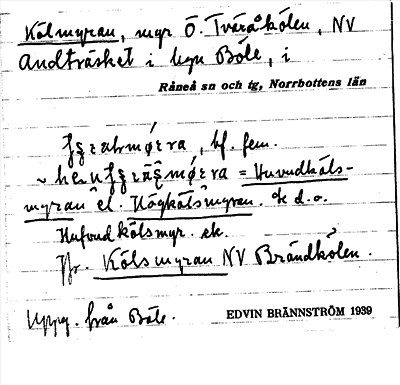 Kölmyran, myr Ö. Tväråkölen, NV
Andträsket i byn Böle, i
Råneå sn och tg, Norrbottens län
bf. fem.
= Huvudköls-
myran el. Högkölsmyran. ek d.o.
Hufvudkölsmyr. ek.
Jfr. Kölsmyran NV Brändkölen.
Uppg. från Böle.
EDVIN BRÄNNSTRÖM 1939